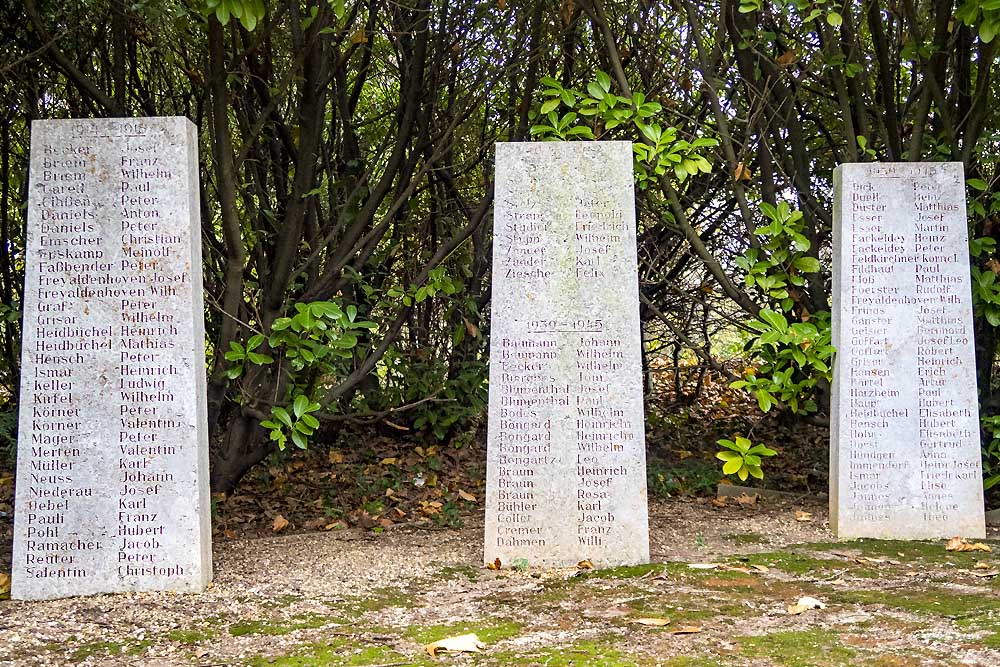 1914-1918
Becker Josef
Briem Franz
Briem Wilhelm
Carell Paul
Peter
Daniels Anton
Daniels Peter
Emscher Christian
Erskamp Meinolf
Faßbender Peter
Freyaldenhoven Josef
Freyaldenhoven Wilh.
Graf Peter
Grisar Wilhelm
Heidbüchel Heinrich
Heidbüchel Mathias
Hensch Peter
Ismar Heinrich
Keller Ludwig
Wilhelm
Körner Peter
Körner Valentin
Mager Peter
Merten Valentin
Müller Karl
Neuss Johann
Niederau Josef
Oebel Karl
Pauli Franz
Pohl Hubert
Ramacher Jacob
Reuter Peter
Salentin Christoph
Peter
Leopold
Studer Friedrich
Wilhelm
Josef
Karl
Ziesche Felix
1939-1945
Baumann Johann
Baumann Wilhelm
Becker Wilhelm
Toni
Blumenthal Josef
Blumenthal Paul
Bodes Wilhelm
Bongard Heinrich
Bongard Heinrich
Bongard Wilhelm
Bongartz Leo
Braun Heinrich
Braun Josef
Braun Rosa
Bühler Karl
Coller Jacob
Cremer Franz
Dahmen Willi
1939-1945
Dick Peter
Duell Heinz
Duster Matthias
Esser Josef
Esser Martin
Fackeldey Heinz
Fackeldey Peter
Feldkirchner Kornel.
Fildhaut Paul
Floß Matthias
Foerster Rudolf
Freyaldenhoven Wilh.
Frings Josef
Gangster Matthias
Geiser Bernhard
Goffart Josef Leo
Goffart Robert
Grisar Heinrich
Hansen Erich
Hartel Artur
Harzheim Paul
Hauer Hubert
Heidbüchel Elisabeth
Hensch Hubert
Elisabeth
Gertrud
Hündgen Anna
Immendorf Heinr. Josef
Ismar Friedr. Karl
Jacobs Elise
Agnes
Helene
Theo